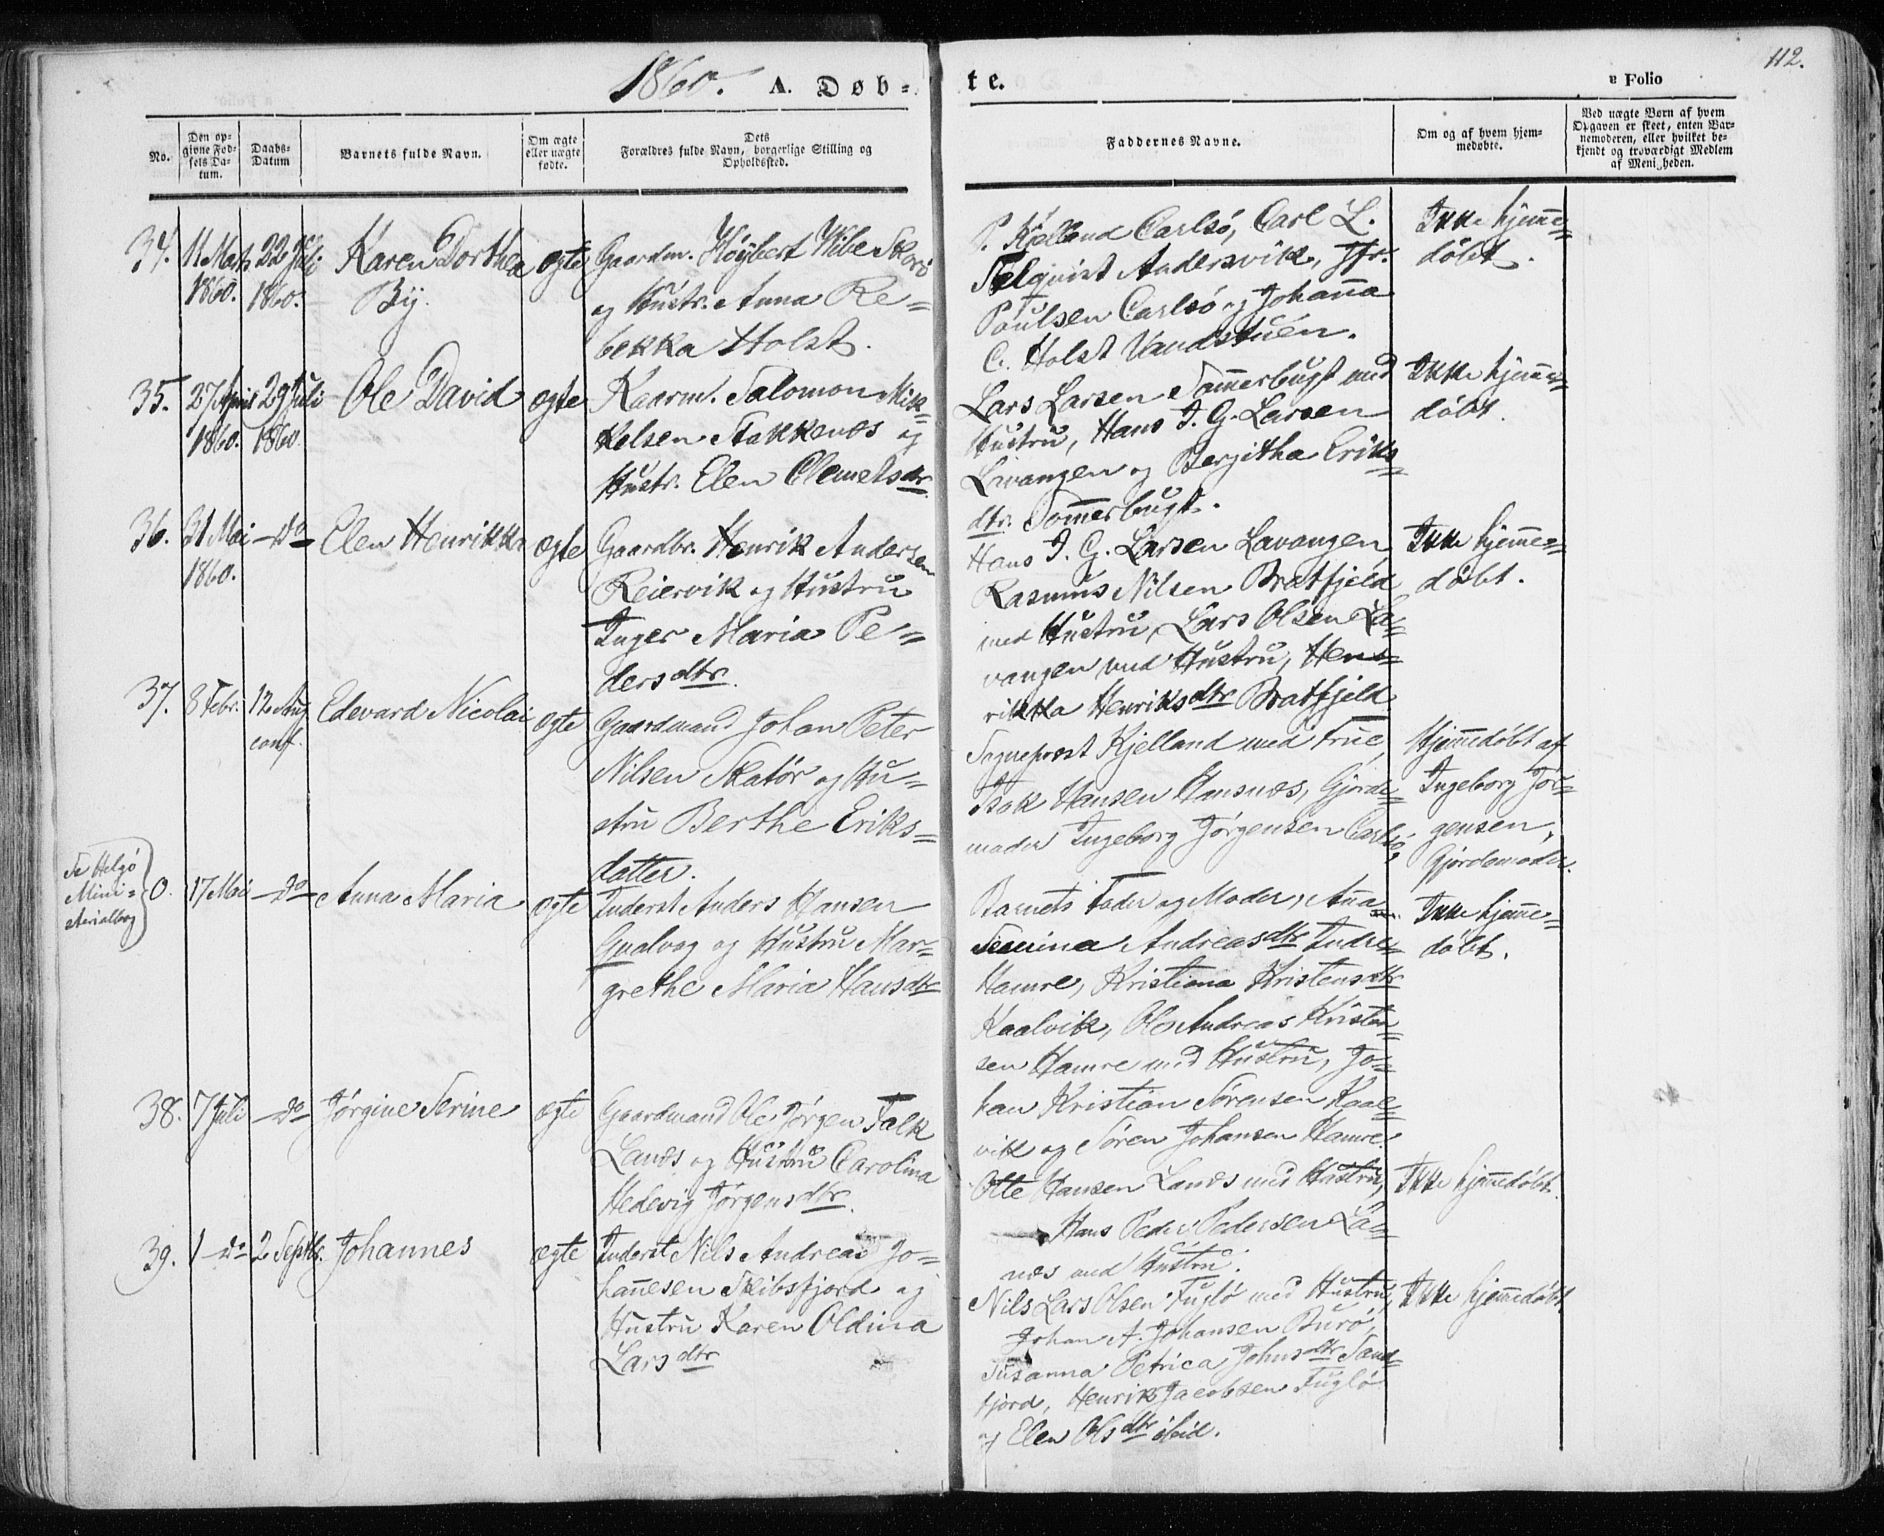 112.
1860. A. Døb-te.
Folio
No.
Den op-
givne Fød-
sels Da-
tum.
Daabs-
Datum
Barnets fulde Navn.
Om ægte
eller uægte
fødte.
Dets
Forældres fulde Navn, borgerlige Stilling og
Opholdssted.
Faddernes Navne.
Om og af hvem hjem-
medøbte.
Ved uægte Børn af hvem
Opgaven er skeet, enten Bar-
nemoderen, eller hvilket be-
kjendt og troværdigt Medlem
af Menigheden.
34.
11 Mats
1860.
22 Juli
1860.
Karen Dorthea
By.
ægte
Gaardm. Höybert Wibe Skorö
og Hustr. Anna Re=
bekka Holst.
P. Kjelland Carlsö, Carl L.
Selquist Andersvik, Jfr.
Poulsen Carlsö og Johanna
C. Holst Vandstuen.
Ikke hjemme=
döbt.
35.
27 April
1860.
29 Juli
1860
Ole David
ægte
Kaarm. Salomon Mik=
kelsen Stakkenæs og
Hustr. Elen Clemetsdtr.
Lars Larsen Sommerbugt med
Hustru, Hans J. G. Larsen
Lavangen og Bergitha Eriks=
dtr. Sommerbugt.
Ikke hjemme=
döbt.
36.
31 Mai
1860.
do
Elen Henrikka
ægte
Gaardbr. Henrik Andersen
Reiervik og Hustru
Inger Maria Pe=
dersdtr.
Hans J. G. Larsen Lavangen,
Rasmus Nilsen Bratfjeld
med Hustru, Lars Olsen La=
vangen med Hustru, Hen=
rikka Henriksdtr Bratfjeld
Ikke hjemme=
döbt.
37.
8 Febr.
12 Aug
conf.
Edevard Nicolai
ægte
Gaardmand Johan Peter
Nilsen Skatör og Hu=
stru Berthe Eriks=
datter.
Sogneprest Kjelland med Frue,
Isak Hansen Hansnæs, Gjorde=
moder Ingeborg Jörgensen Carlsö,
Hjemmedöbt af
Ingeborg Jör=
gensen,
Gjordemoder.
Se Helgö
Mini=
sterialbog
0.
17 Mai
do
Anna Maria
ægte
Inderst Anders Hansen
Grunlvog og Hustru Mar=
grethe Maria Hansdtr
Barnets Fader og Moder, Anna
Severina Andreasdtr Indre=
Hamre, Kristiana Kristensdtr
Kaalvik, Ole Andreas Kristen=
sen Hamre med Hustru, Jo=
han Kristian Sörensen Kaal=
vik og Sören Johansen Hamre.
Ikke hjemme=
döbt.
38.
7 Juli
do
Jörgine Serine
ægte
Gaardmand Ole Jörgen Falk
Lanæs og Hustru Carolina
Hedevig Jörgensdtr.
Otte Hansen Lanæs med Hustru,
Hans Peder Pedersen La=
næs med Hustru.
Ikke hjemmedöbt.
39.
1 do
2 Septbr.
Johannes
ægte
Inderst Nils Andreas Jo=
hannesen Skibsfjord og
Hustru Karen Oldina
Larsdtr
Nils Lars Olsen Fuglö med Hustru,
Johan A. Johansen Burö,
Susanna Petrica Johnsdtr Sand=
fjord, Henrik Jacobsen Fuglö
og Elen Olsdtr ibid.
Ikke hjemmedöbt